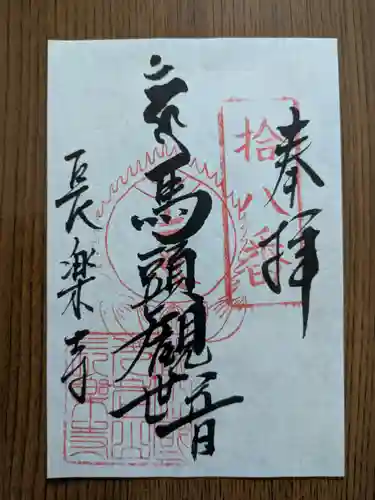 奉拝
拾八番
馬頭観世音
長楽寺